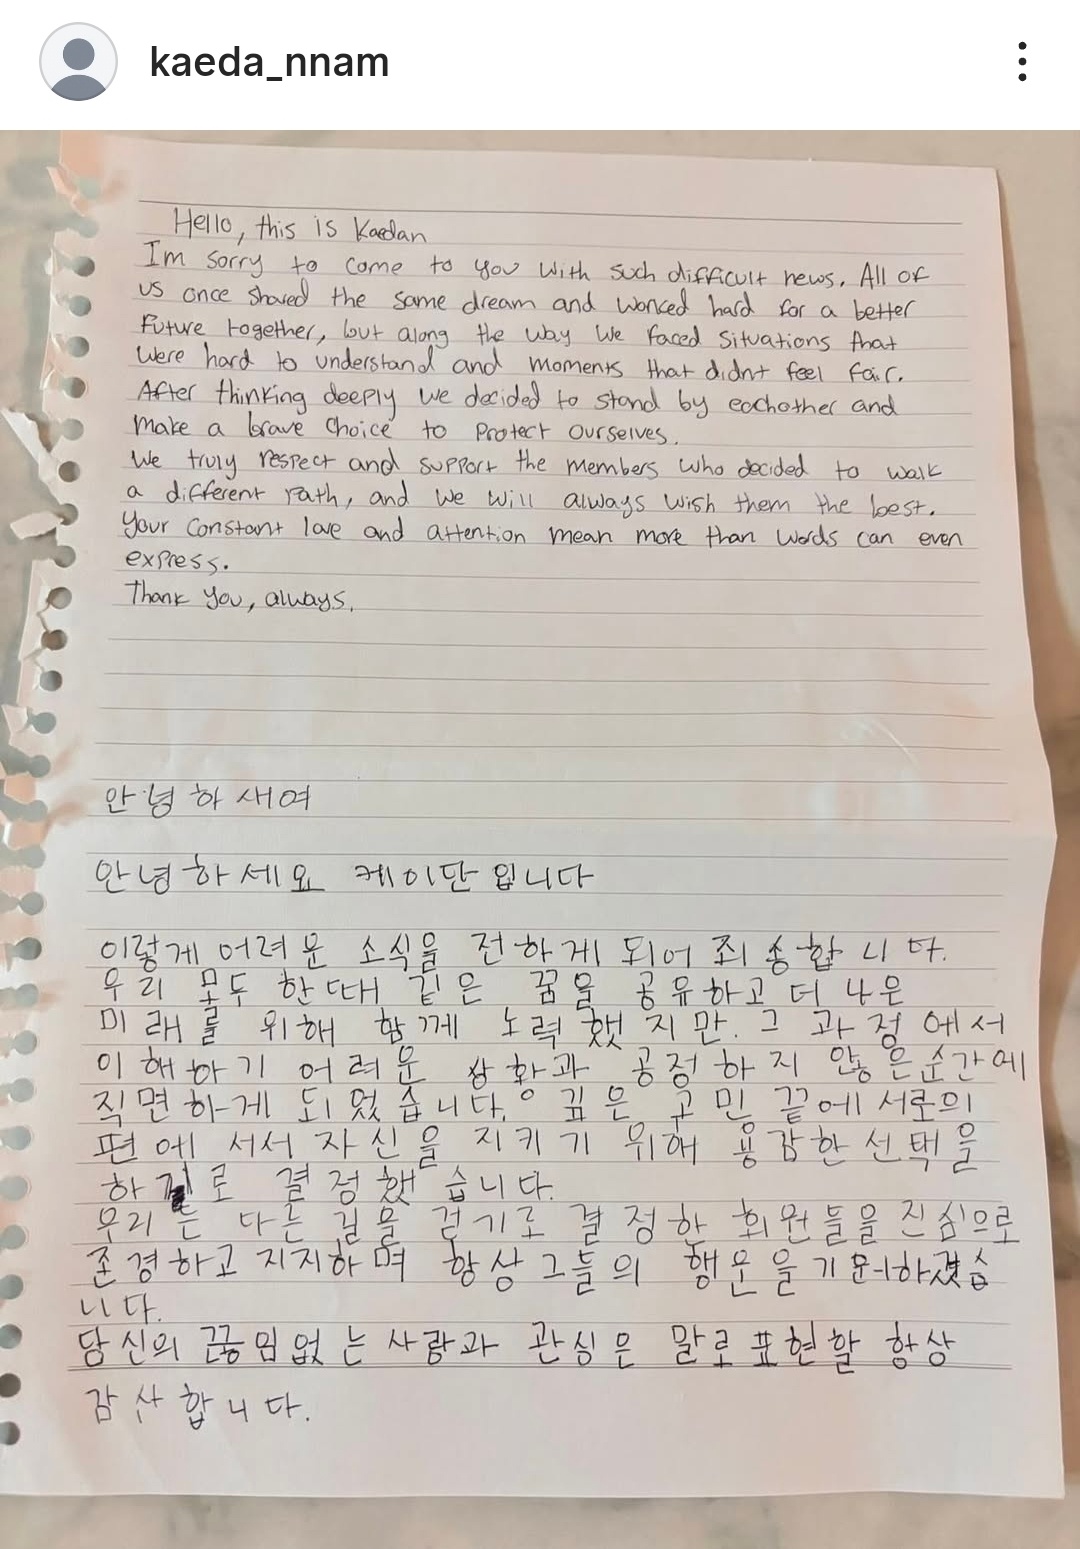 kaeda_nnam
Hello, this is Kaedan
Im sorry to come to you with such difficult news. All of
us once shared the same dream and worked hard for a better
Future together, but along the way we faced situations that
were hard to understand and moments that didnt feel fair.
After thinking deeply we decided to stand by eachother and
make a brave choice to protect ourselves.
We truly respect and support the members who decided to walk
a different path, and we will always wish them the best.
Your constant love and attention mean more than words can even
express.
Thank you, always.
안녕하새여
안녕하세요 케이단입니다
이렇게 어려운 소식을 전하게 되어 죄송합니다.
우리 모두 한때 같은 꿈을 공유하고 더 나은
미래를 위해 함께 노력했지만. 그 과정에서
이해하기 어려운 상황과 공정하지 않은 순간에
직면하게 되었습니다. 깊은 고민 끝에 서로의
편에 서서 자신을 지키기 위해 용감한 선택을
하기로 결정했습니다.
우리는 다른 길을 걷기로 결정한 회원들을 진심으로
존경하고 지지하며 항상 그들의 행운을 하겠습
니다.
당신의 끊임없는 사랑과 관심은 말로 표현할 항상
감사합니다.